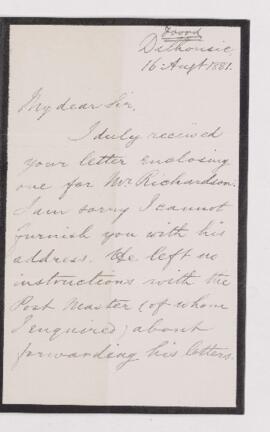 Foord
Dalhousie
16 Augt 1881.
My dear Sir,
I duly received
your letter enclosing
one for Mr Richardson.
I am sorry I cannot
furnish you with his
address. He left no
instructions with the
Post Master (of whom
I enquired) about
forwarding his letters.